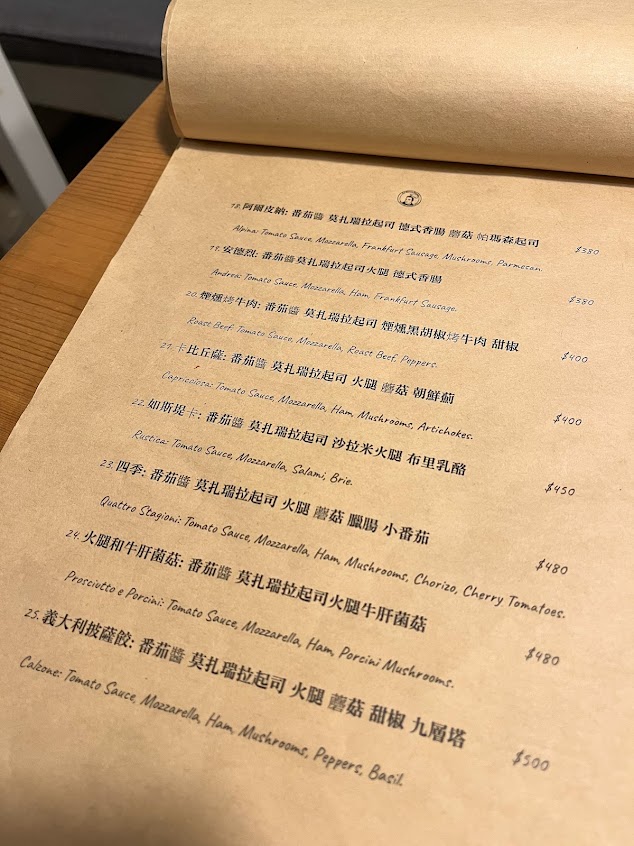 18. 阿爾皮納: 番茄醬 莫扎瑞拉起司 德式香腸 蘑菇 帕瑪森起司
Alpina: Tomato Sauce, Mozzarella, Frankfurt Sausage, Mushrooms, Parmesan.
$380
19. 安德烈: 番茄醬莫扎瑞拉起司火腿 德式香腸
Andrea: Tomato Sauce, Mozzarella, Ham, Frankfurt Sausage.
$380
20. 煙燻烤牛肉: 番茄醬 莫扎瑞拉起司 煙燻黑胡椒烤牛肉 甜椒
Roast Beef: Tomato Sauce, Mozzarella, Roast Beef, Peppers.
$400
21. 卡比丘薩: 番茄醬 莫扎瑞拉起司 火腿 蘑菇 朝鮮薊
Capricciosa: Tomato Sauce, Mozzarella, Ham, Mushrooms, Artichokes.
$400
22. 如斯堤卡: 番茄醬 莫扎瑞拉起司 沙拉米火腿 布里乳酪
Rustica: Tomato Sauce, Mozzarella, Salami, Brie.
$450
23. 四季: 番茄醬 莫扎瑞拉起司 火腿 蘑菇 臘腸 小番茄
Quattro Stagioni: Tomato Sauce, Mozzarella, Ham, Mushrooms, Chorizo, Cherry Tomatoes.
$480
24. 火腿和牛肝菌菇: 番茄醬 莫扎瑞拉起司火腿牛肝菌菇
Prosciutto e Porcini: Tomato Sauce, Mozzarella, Ham, Porcini Mushrooms.
$480
25. 義大利披薩餃: 番茄醬 莫扎瑞拉起司 火腿 蘑菇 甜椒 九層塔
Calzone: Tomato Sauce, Mozzarella, Ham, Mushrooms, Peppers, Basil.
$500